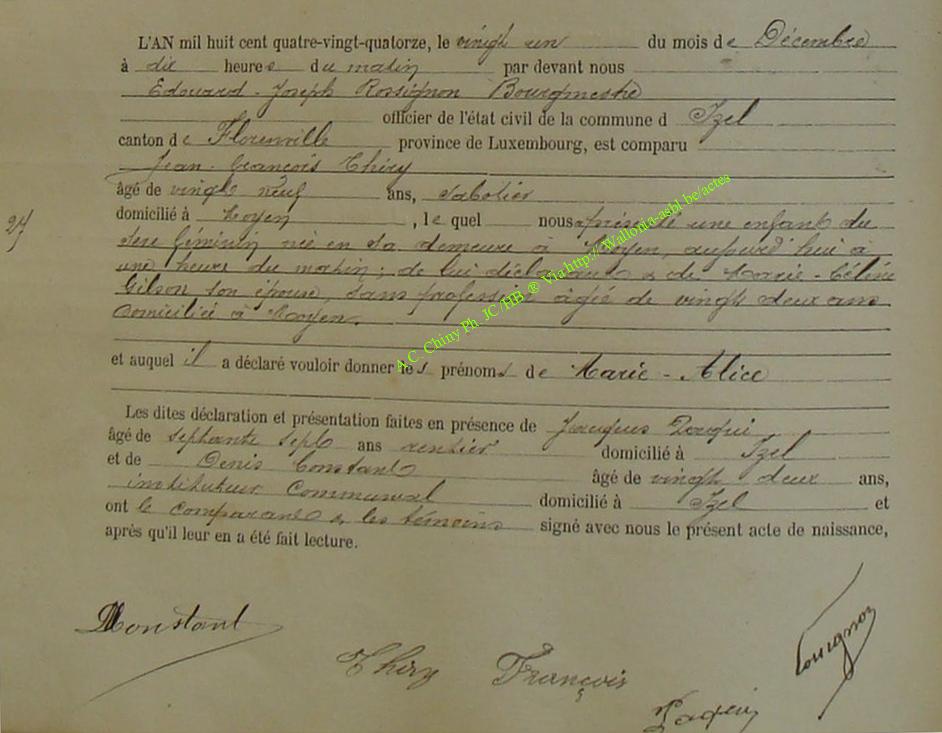 L'AN mil huit cent quatre-vingt-quatorze, le vingt un du mois de Décembre
à dix heures du matin par devant nous
Edouard-Joseph Rossignon Bourgmestre
officier de l'état civil de la commune d Izel
canton de Florenville province de Luxembourg, est comparu
Jean-François Thiry
âgé de vingt neuf ans, sabotier
domicilié à Moyen, lequel nous a présenté une enfant du
27
sexe féminin née en sa demeure à Moyen, aujourd'hui à
une heure du matin; de lui déclarant & de Marie-Céline
Gilson son épouse, sans profession âgée de vingt deux ans
domiciliée à Moyen.
A.C. Chiny Ph. JC/HB ® Via http://Wallonia-asbl.be/actes
et auquel il a déclaré vouloir donner les prénoms de Marie-Alice
Les dites déclaration et présentation faites en présence de Jacques
âgé de septante sept ans rentier domicilié à Izel
et de Denis Constant âgé de vingt deux ans,
instituteur communal domicilié à Izel et
ont le comparant & les témoins signé avec nous le présent acte de naissance,
après qu'il leur en a été fait lecture.
DConstant
Thiry François
Rossignon